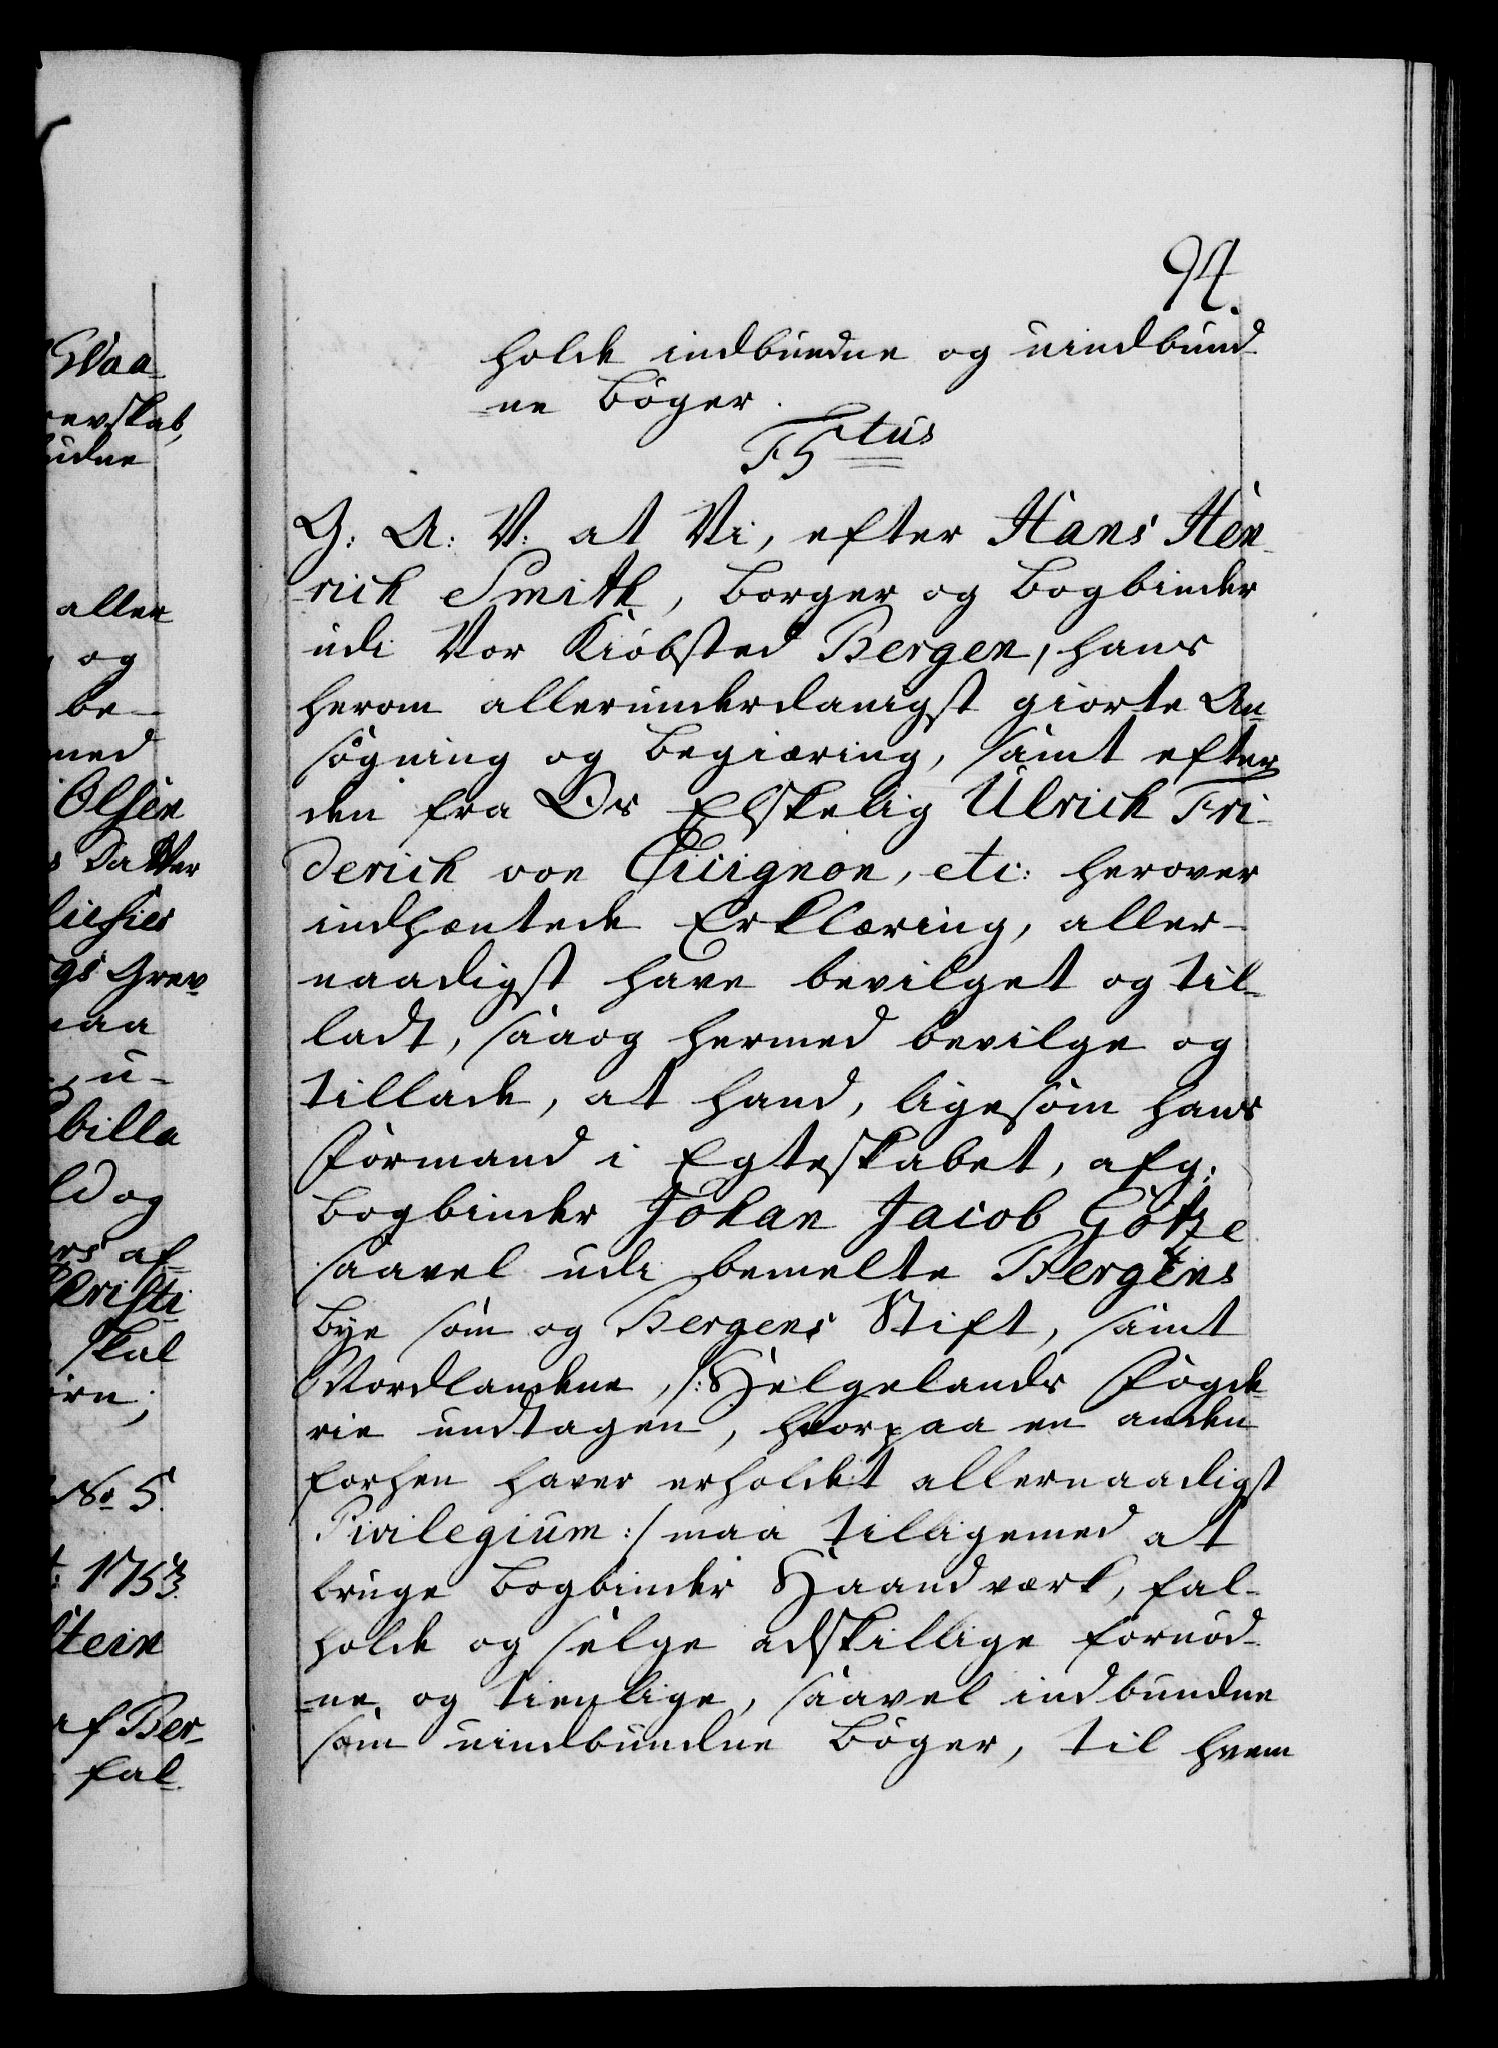 94.
holde indbundne og uindbund-
-ne Bøger.
F5tus
G: A: V: at Vi, efter Hans Hen-
-rich Smith, Borger og Bogbinder
udi Vor Kiøbsted Bergen, hans
herom allerunderdanigst giorte An-
søgning og Begiæring, samt efter
den fra Os Elskelig Ulrich Fri-
derich von Cicignon, etc: herover
indhæntede Erklæring, aller-
naadigst have bevilget og til-
ladt, saa og hermed bevilge og
tillade, at hand, ligesom hans
Formand i Egteskabet, afg:
Bogbinder Johan Jacob Götze
saavel udi bemelte Bergens
Bye som og Bergens Stift, samt
Nordlandene, /: Helgelands Fogde-
rie undtagen, hvorpaa en anden
forhen haver erholdet allernaadigst
Privilegium :/ maa tilligemed at
bruge Bogbinder Haandværk, fal-
holde og sælge adskillige fornød-
-ne og tienlige, saavel indbundne
som uindbundne Bøger, til hvem
Waa-
revskab,
undne
aller
og
be-
med
Olsen
s Datter
gs Grev-
maa
u-
billa
ld og
ers af-
Christi
skal
ørn;
No 5.
1753.
stein
af Ber-
fal-